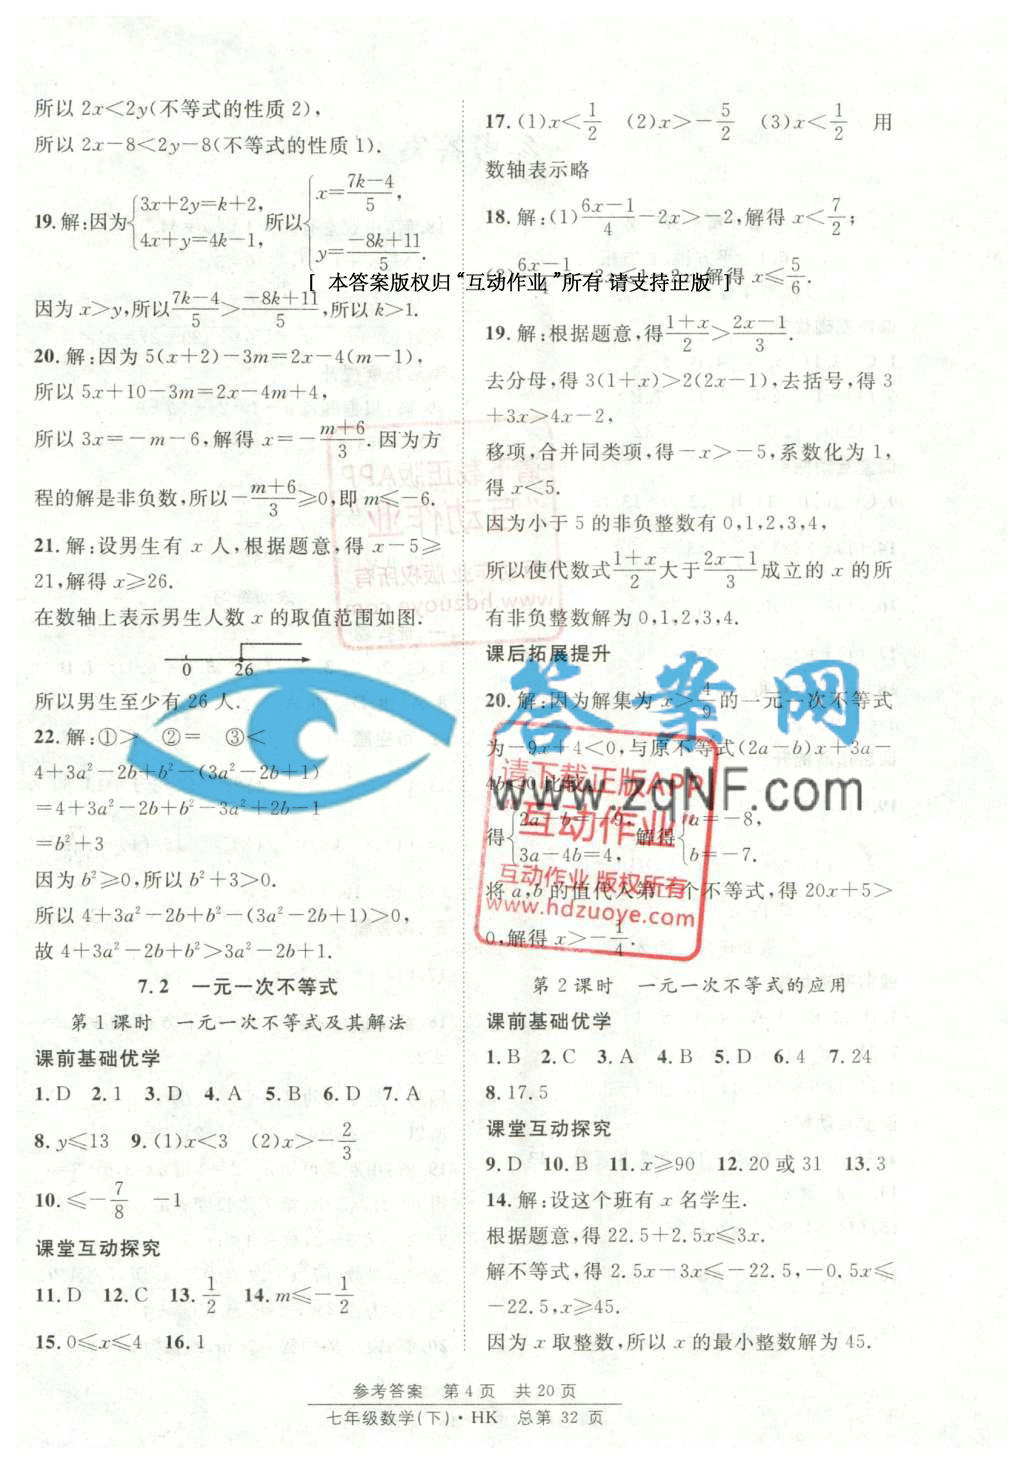 所以 2x<2y(不等式的性质 2),
所以 2x-8<2y-8(不等式的性质 1).
19.解:因为{3x+2y=k+2, 4x+y=4k-1, 所以{x=(7k-4)/5, y=(-8k+11)/5.
因为 x>y,所以(7k-4)/5>(-8k+11)/5,所以 k>1.
20.解:因为 5(x+2)-3m=2x-4(m-1),
所以 5x+10-3m=2x-4m+4,
所以 3x=-m-6,解得 x=-(m+6)/3.因为方
程的解是非负数,所以-(m+6)/3≥0,即 m≤-6.
21.解:设男生有 x 人,根据题意,得 x-5≥
21,解得 x≥26.
在数轴上表示男生人数 x 的取值范围如图.
0 26
所以男生至少有 26 人.
22.解:①> ②= ③<
4+3a²-2b+b²-(3a²-2b+1)
=4+3a²-2b+b²-3a²+2b-1
=b²+3
因为 b²≥0,所以 b²+3>0.
所以 4+3a²-2b+b²-(3a²-2b+1)>0,
故 4+3a²-2b+b²>3a²-2b+1.
7.2 一元一次不等式
第 1 课时 一元一次不等式及其解法
课前基础优学
1.D 2.1 3.D 4.A 5.B 6.D 7.A
8.y≤13 9.(1)x<3 (2)x>-2/3
10.≤-7/8 -1
课堂互动探究
11.D 12.C 13.1/2 14.m≤-1/2
15.0≤x≤4 16.1
17.(1)x<1/2 (2)x>-5/2 (3)x<1/2 用
数轴表示略
18.解:(1)(6x-1)/4-2x>-2,解得 x<7/2;
(2)(6x-1)/4-2x 解得 x≤5/6.
[ 本答案版权归“互动作业”所有 请支持正版 ]
19.解:根据题意,得(1+x)/2>(2x-1)/3.
去分母,得 3(1+x)>2(2x-1),去括号,得 3
+3x>4x-2,
移项,合并同类项,得-x>-5,系数化为 1,
得 x<5.
因为小于 5 的非负整数有 0,1,2,3,4,
所以使代数式(1+x)/2大于(2x-1)/3成立的 x 的所
有非负整数解为 0,1,2,3,4.
课后拓展提升
20.解:因为解集为 x>4/9的一元一次不等式
为-9x+4<0,与原不等式(2a-b)x+3a-
4b<0 比较,
得{2a-b=-9, 3a-4b=4, 解得{a=-8, b=-7.
将 a,b 的值代入第二个不等式,得 20x+5>
0,解得 x>-1/4.
第 2 课时 一元一次不等式的应用
课前基础优学
1.B 2.C 3.A 4.B 5.D 6.4 7.24
8.17.5
课堂互动探究
9.D 10.B 11.x≥90 12.20 或 31 13.3
14.解:设这个班有 x 名学生.
根据题意,得 22.5+2.5x≤3x.
解不等式,得 2.5x-3x≤-22.5,-0.5x≤
-22.5,x≥45.
因为 x 取整数,所以 x 的最小整数解为 45.
答案网
www.zqNF.com
请下载正版APP
“互动作业”
互动作业 版权所有
www.hdzuoye.com
参考答案 第 4 页 共 20 页
七年级数学(下)·HK 总第 32 页